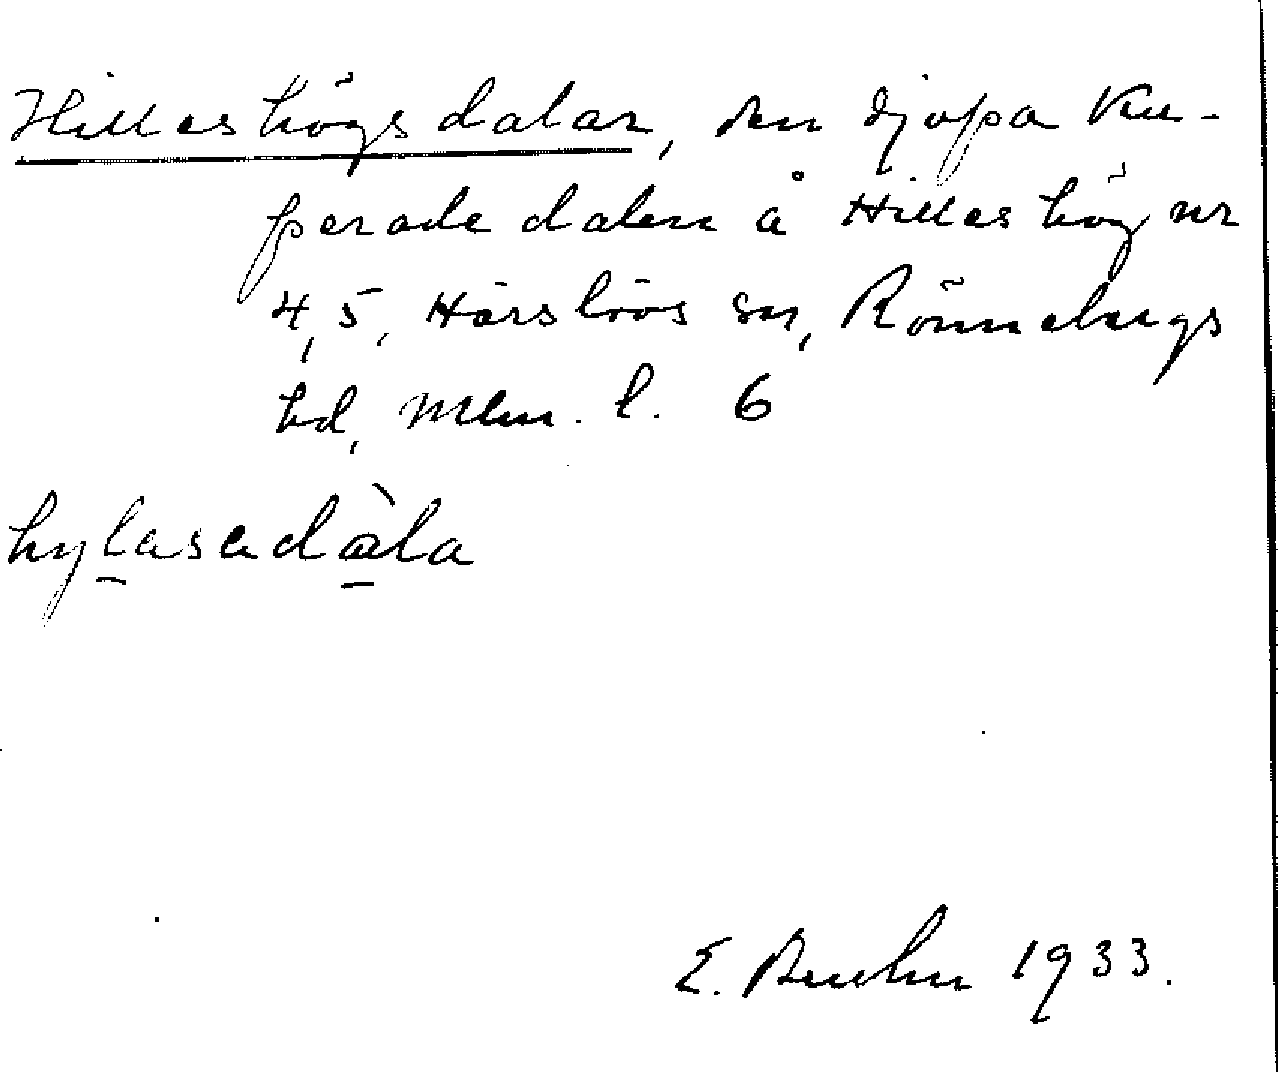 Hilleshögs dalar, den djupa ku-
perade dalen å Hilleshög nr
4, 5, Härslövs sn, Rönnebergs
hd, Mlm. l. 6
hylasadàla
E. Bruhn 1933.